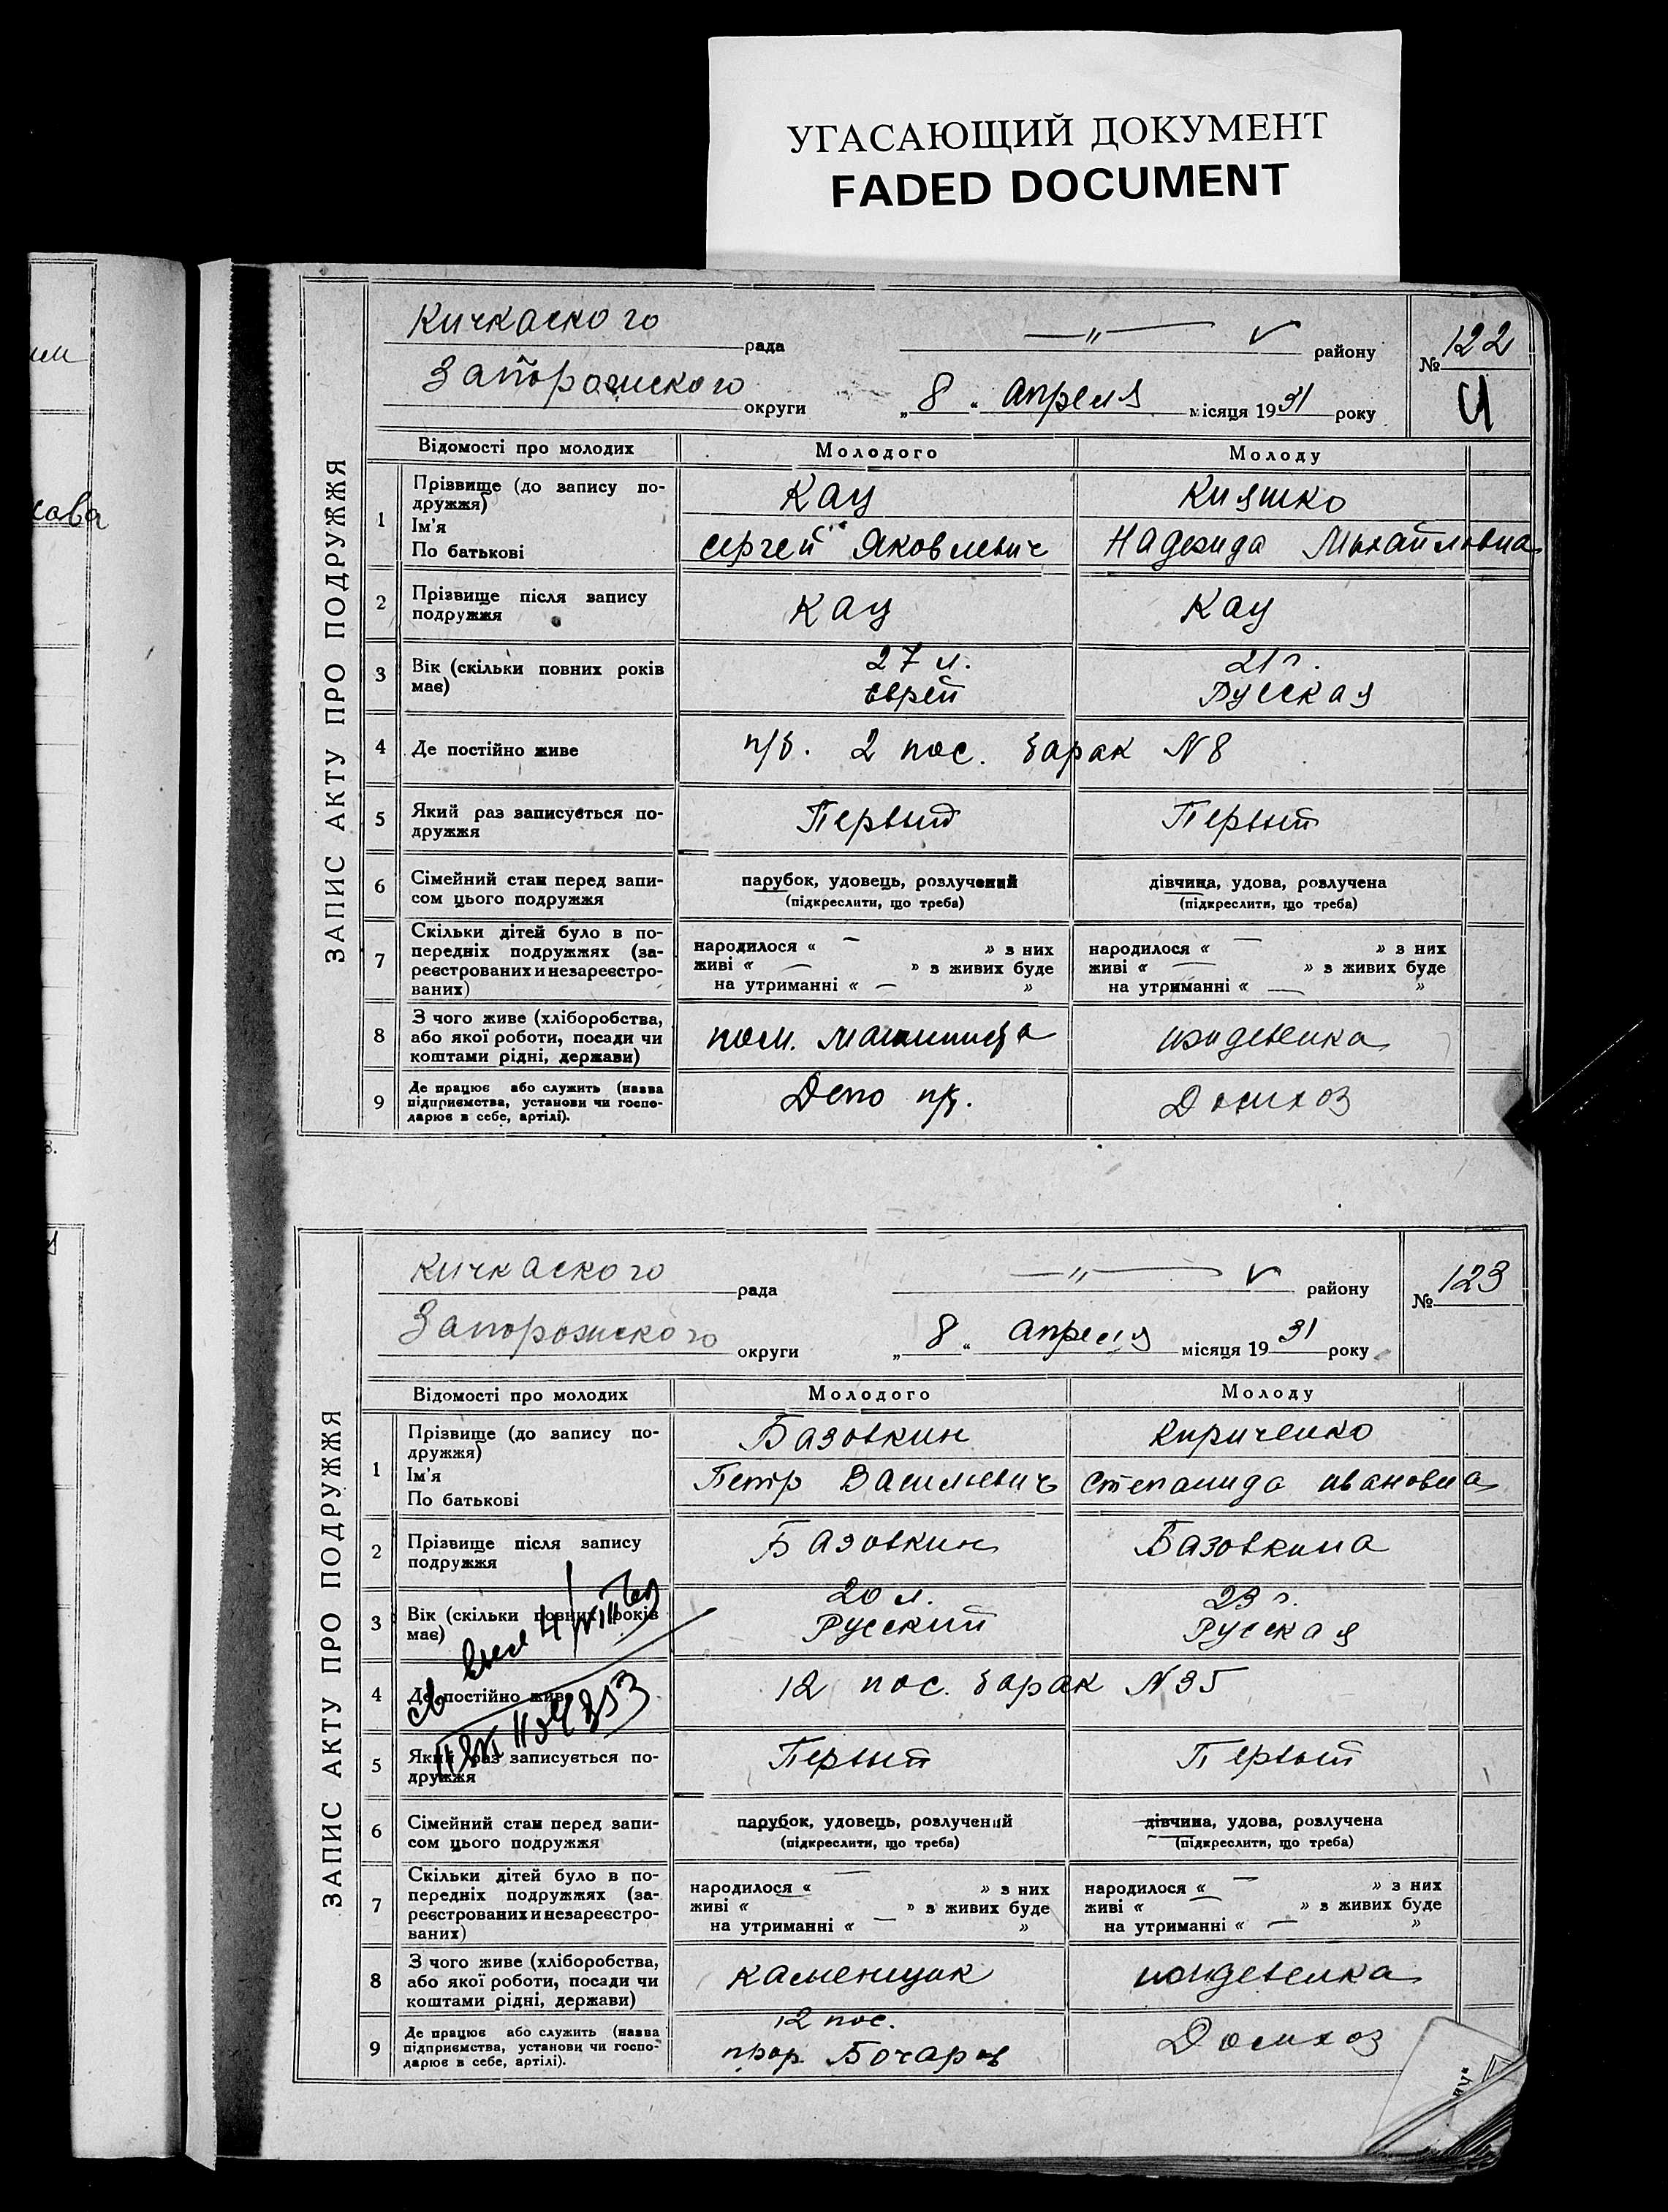 УГАСАЮЩИЙ ДОКУМЕНТ
FADED DOCUMENT
ЗАПИС АКТУ ПРО ПОДРУЖЖЯ
Кичкаского рада —〃— району № 122
Запорожского округи „8“ апреля місяця 1931 року
Відомості про молодих Молодого Молоду
1 Прізвище (до запису по-
дружжя) Кац Кияшко
Ім'я
По батькові Сергей Яковлевич Надежда Михайловна
2 Прізвище після запису
подружжя Кац Кац
3 Вік (скільки повних років
має) 27 л. 21 г.
Еврей Русская
4 Де постійно живе п/б. 2 пос. барак N 8
5 Який раз записується по-
дружжя Первый Первый
6 Сімейний стан перед запи-
сом цього подружжя
парубок, удовець, розлучений дівчина, удова, розлучена
(підкреслити, що треба) (підкреслити, що треба)
7 Скільки дітей було в по-
передніх подружжях (за-
реєстрованих и незареєстро-
ваних)
народилося « — » з них народилося « — » з них
живі « — » з живих буде живі « — » з живих буде
на утриманні « — » на утриманні « — »
8 З чого живе (хліборобства,
або якої роботи, посади чи
коштами рідні, держави) пом. машиниста иждевенка
9 Де працює або служить (назва
підприємства, установи чи госпо-
дарює в себе, артілі). Депо п/б. Домхоз
ЗАПИС АКТУ ПРО ПОДРУЖЖЯ
Кичкаского рада —〃— району № 123
Запорожского округи „8“ апреля місяця 1931 року
Відомості про молодих Молодого Молоду
1 Прізвище (до запису по-
дружжя) Базовкин Кириченко
Ім'я
По батькові Петр Васильевич Степанида Ивановна
2 Прізвище після запису
подружжя Базовкин Базовкина
3 Вік (скільки повних років
має) 20 л. 23 г.
Русский Русская
4 Де постійно живе 12 пос. барак N 35
5 Який раз записується по-
дружжя Первый Первый
6 Сімейний стан перед запи-
сом цього подружжя
парубок, удовець, розлучений дівчина, удова, розлучена
(підкреслити, що треба) (підкреслити, що треба)
7 Скільки дітей було в по-
передніх подружжях (за-
реєстрованих и незареєстро-
ваних)
народилося « — » з них народилося « — » з них
живі « » з живих буде живі « — » з живих буде
на утриманні « — » на утриманні « — »
8 З чого живе (хліборобства,
або якої роботи, посади чи
коштами рідні, держави) каменщик иждевенка
9 Де працює або служить (назва
підприємства, установи чи госпо-
дарює в себе, артілі). 12 пос.
прор Бочаров Домхоз